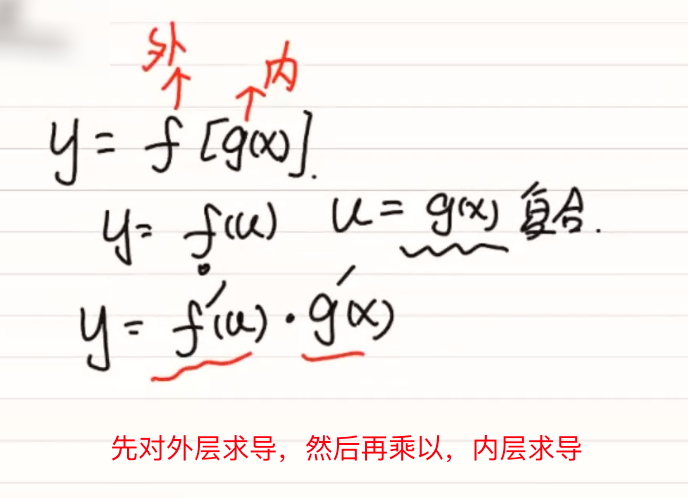 外 内
y = f [g(x)].
y = f(u) u = g(x) 复合.
y = f'(u) · g'(x)
先对外层求导，然后再乘以，内层求导